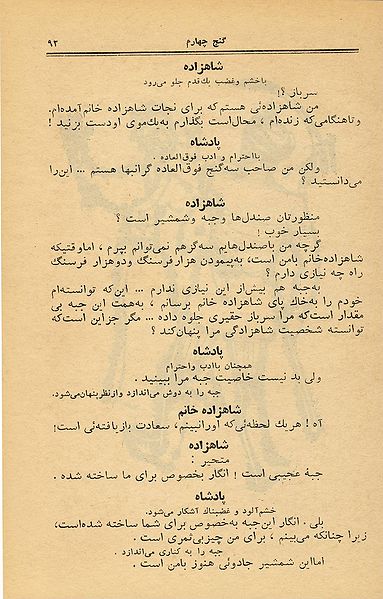 گنج چهارم
۹۳
شاهزاده
باخشم وغضب یك‌قدم جلو می‌رود
سرباز ؟!
من شاهزاده‌ئی هستم‌که برای نجات شاهزاده خانم آمده‌ام.
وتاهنگامی‌که زنده‌ام ، محال‌است بگذارم به‌یك‌موی اودست بزنید !
پادشاه
بااحترام و ادب فوق‌العاده .
ولکن من صاحب سه‌گنج فوق‌العاده گرانبها هستم ... این‌را
می‌دانستید ؟
شاهزاده
منظورتان صندل‌ها وجبه وشمشیر است ؟
بسیار خوب !
گرچه من باصندل‌هایم سه‌گزهم نمی‌توانم بپرم ، اماوقتیکه
شاهزاده‌خانم بامن است، به‌پیمودن هزارفرسنگ ودوهزار فرسنگ
راه چه نیازی دارم ؟
به‌جبه هم بیش‌از این نیازی ندارم ... این‌که توانسته‌ام
خودم را به‌خاك پای شاهزاده خانم برسانم ، به‌همت این جبه بی
مقدار است‌که مرا سرباز حقیری جلوه داده ... مگر جزاین است‌که
توانسته شخصیت شاهزادگی مرا پنهان‌کند ؟
پادشاه
همچنان باادب واحترام
ولی بد نیست خاصیت جبه مرا ببینید .
جبه را به دوش می‌اندازد وازنظرپنهان‌می‌شود.
شاهزاده خانم
آه ! هریك لحظه‌ئی‌که اورانبینم، سعادت بازیافته‌ئی است!
شاهزاده
متحیر :
جبهٔ عجیبی است ! انگار بخصوص برای ما ساخته شده .
پادشاه
خشم‌آلود و غضبناك آشکار می‌شود.
بلی . انگار این‌جبه به‌خصوص برای شما ساخته شده‌است،
زیرا چنانکه می‌بینم ، برای من چیزبی‌ثمری است .
جبه را به کناری می‌اندازد .
امااین شمشیر جادوئی هنوز بامن است .